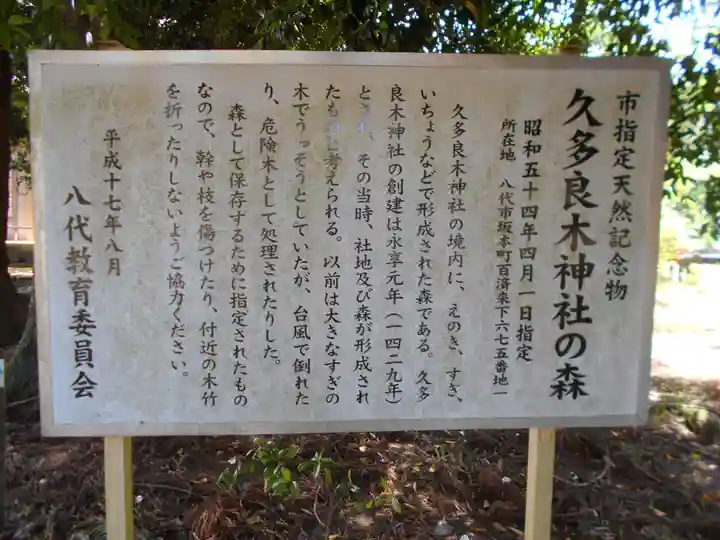 市指定天然記念物
久多良木神社の森
昭和五十四年四月一日指定
所在地　八代市坂本町百済来下六七五番地一
久多良木神社の境内に、えのき、すぎ、
いちょうなどで形成された森である。久多
良木神社の創建は永享元年（一四二九年）
とされ、その当時、社地及び森が形成され
たものと考えられる。以前は大きなすぎの
木でうっそうとしていたが、台風で倒れた
り、危険木として処理されたりした。
森として保存するために指定されたもの
なので、幹や枝を傷つけたり、付近の木竹
を折ったりしないようご協力ください。
平成十七年八月
八代教育委員会